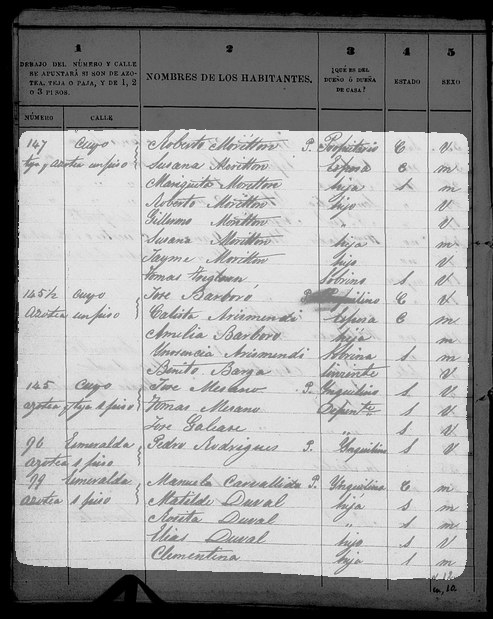 1 2 3 4 5
DEBAJO DEL NÚMERO Y CALLE
SE APUNTARÁ SI SON DE AZO-
TEA, TEJA O PAJA, Y DE 1, 2
O 3 PISOS.
NOMBRES DE LOS HABITANTES.
¿QUÉ ES DEL
DUEÑO Ó DUEÑA
DE CASA?
ESTADO
SEXO
NÚMERO CALLE
147 Cuyo Roberto Moritton P. Propietario C V
teja y azotea un piso Susana Moritton Esposa C m
Mariquita Moritton hija s m
Roberto Moritton hijo V
Gillermo Moritton " V
Susana Moritton hija m
Jayme Moritton hijo V
Tomas Sobrino s V
145½ Cuyo Jose Barboró P C V
azotea un piso Calista Arismendi Esposa C m
Amelia Barboro hija m
Arismendi Sobrina s m
Benito Barga s V
145 Cuyo Jose Merano P. Ynquilino s V
azotea y teja 1 piso Tomas Merano Depente s V
Jose Galease " s V
96 Esmeralda Pedro Rodrigues P. Ynquilino s V
azotea 1 piso
99 Esmeralda Manuela Carvallido P. Ynquilina C m
azotea 1 piso Matilde Duval hija s m
Rosita Duval " s m
Elias Duval hijo s V
Clementina hija s m
v. 12
m. 10